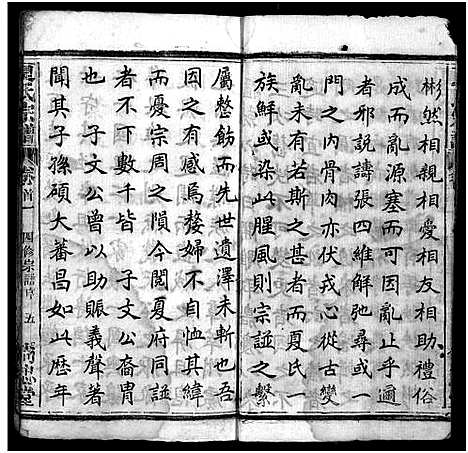 彬然相親相愛相友相助禮俗
成而亂源塞而可因亂止乎邇
者邪說譸張四維解弛尋或一
門之內骨肉亦伏戎心從古變
亂未有若斯之甚者而夏氏一
族鮮或染此腥風則宗譜之繫
屬整飭而先世遺澤未斬也吾
因之有感焉嫠婦不自恤其緯
而憂宗周之隕今閱夏府同譜
者不下數千皆子文公裔胄
也子文公曾以助賑義聲著
聞其子孫碩大蕃昌如此歷年
氏宗譜 卷首一 四修宗譜序 五